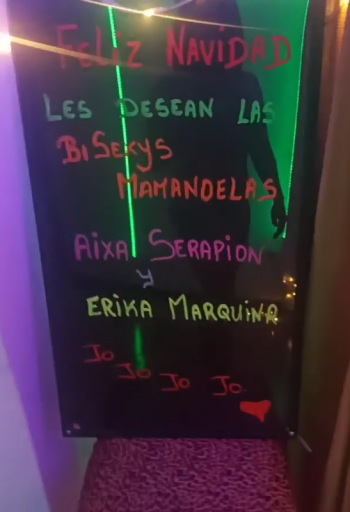 FELIZ NAVIDAD
LES DESEAN LAS
BISEXYS
MAMANDELAS
AIXA SERAPION
Y
ERIKA MARQUINA
JO
JO JO JO